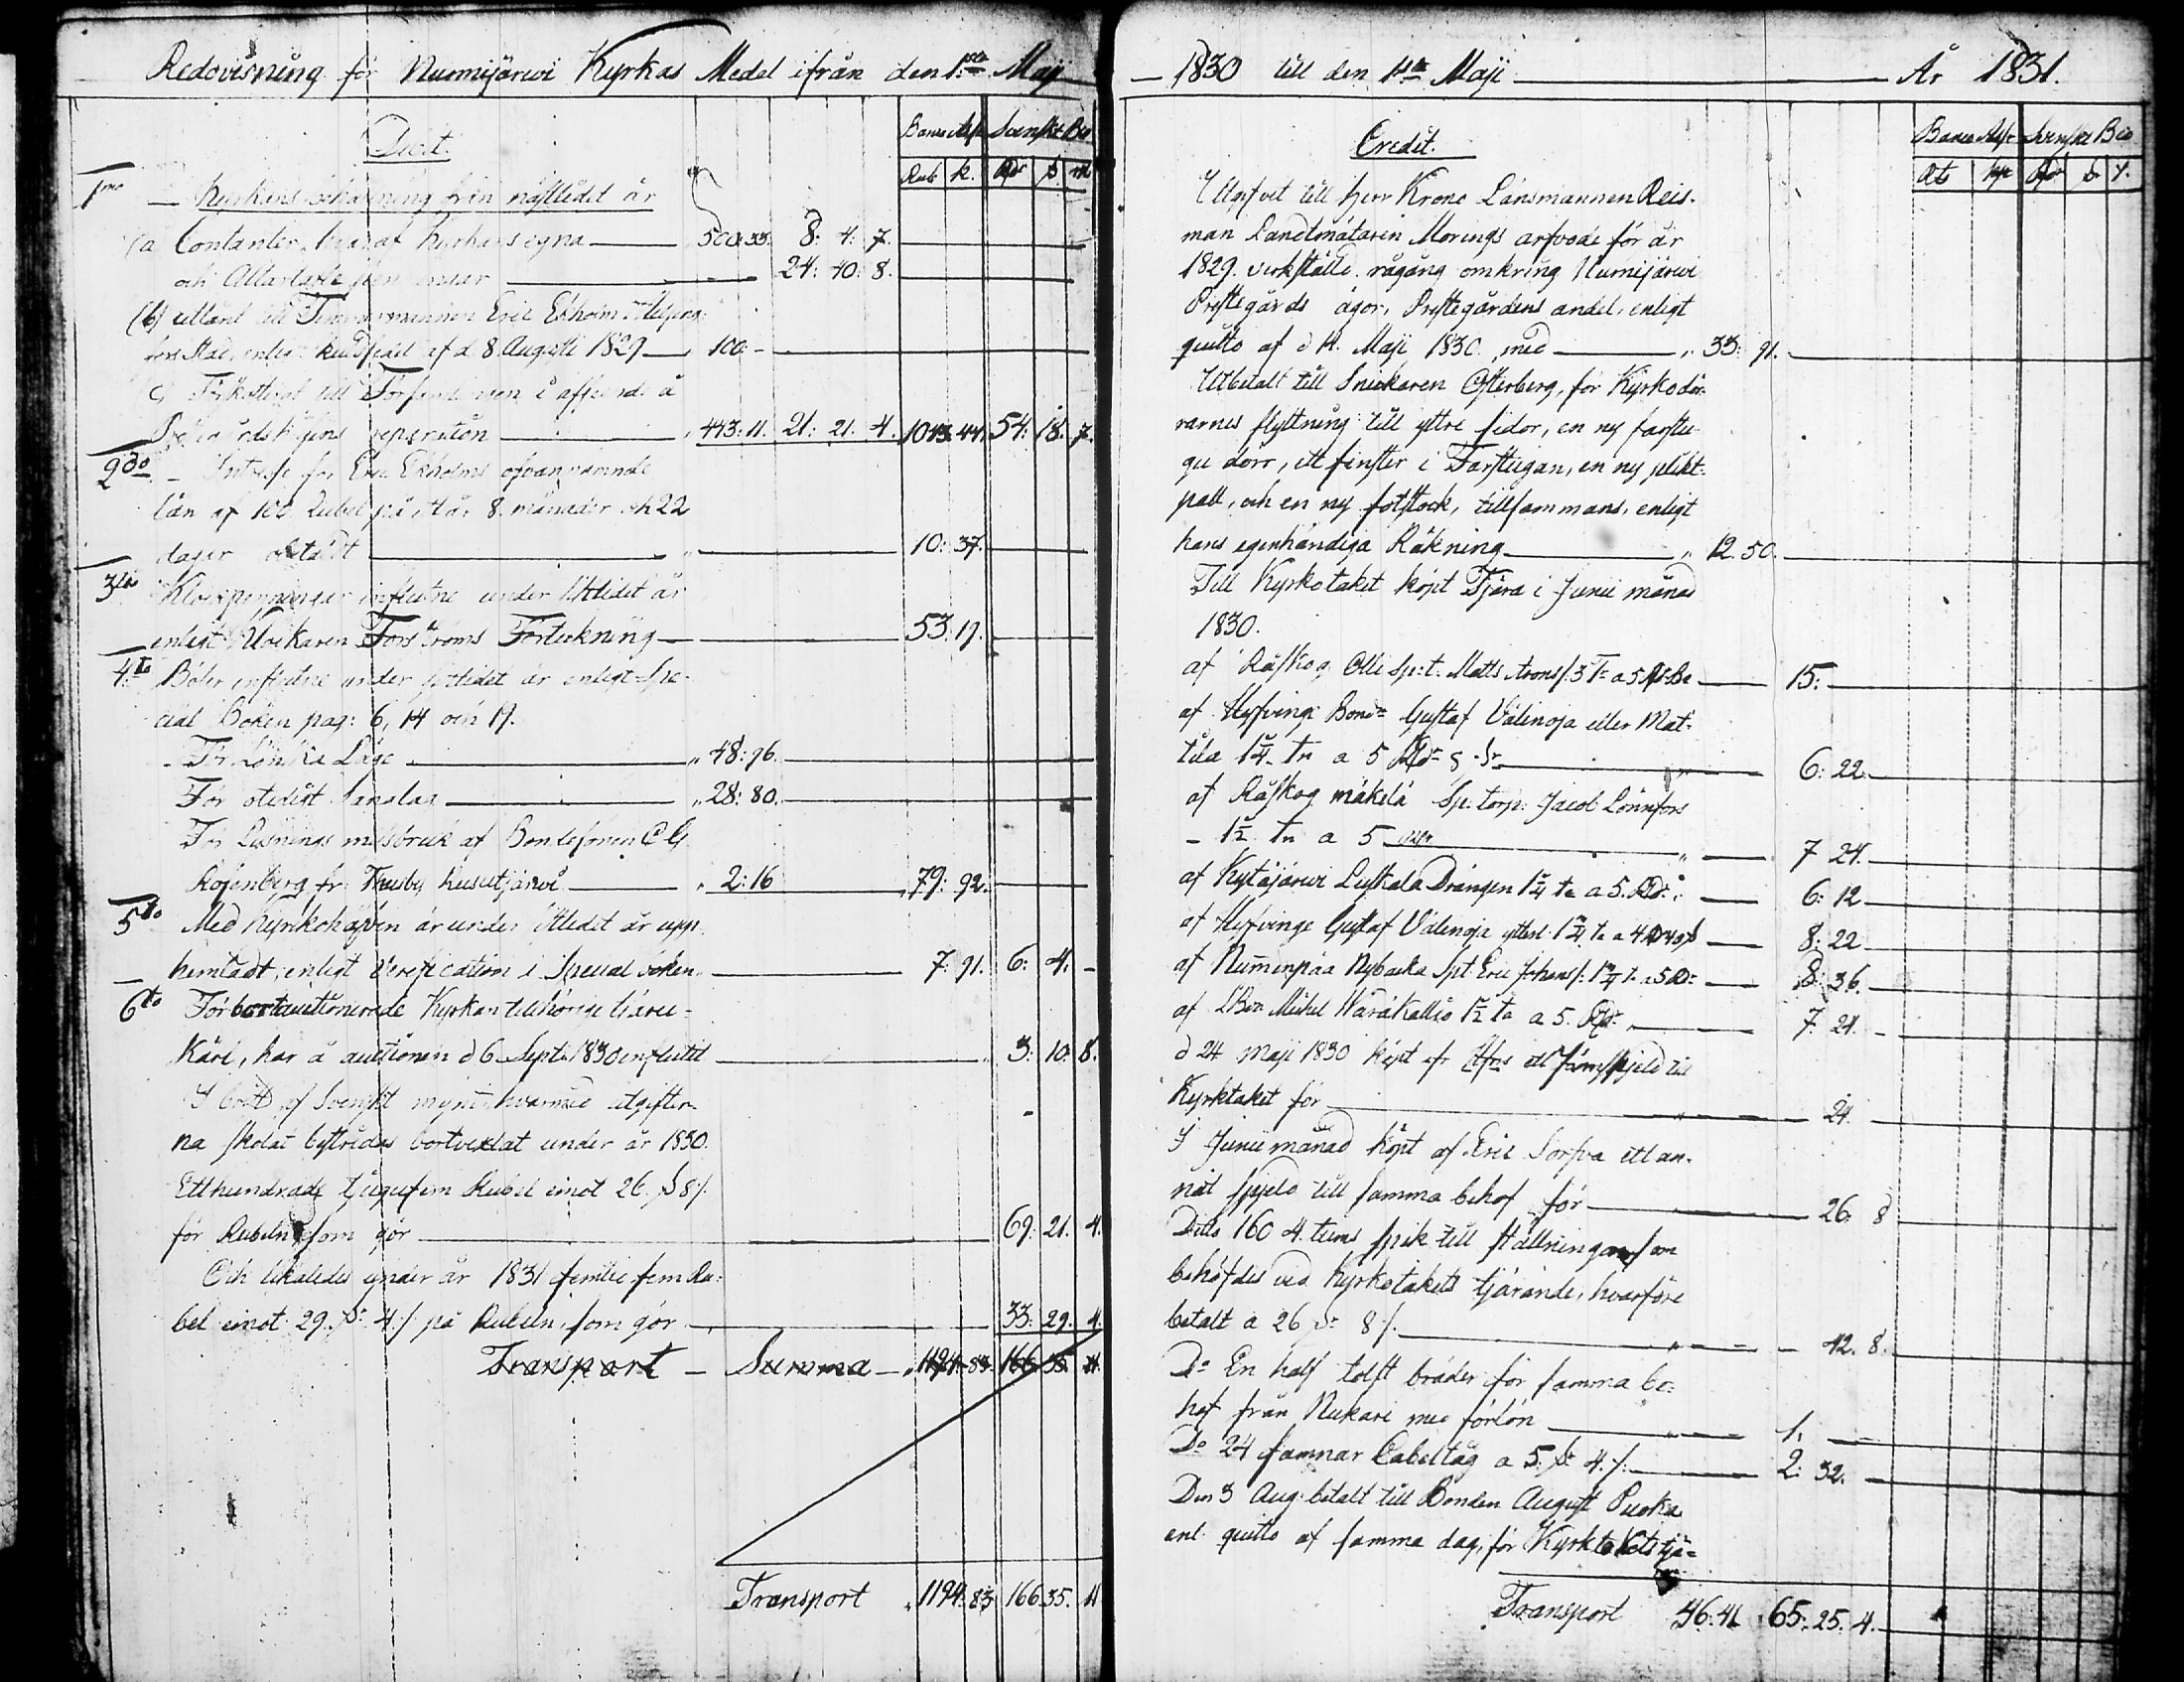 Redovisning för Nurmijärwi Kyrkas Medel ifrån den 1:ma Maji
Debet.
Banco Assr Svenskt Bco
Rub k. Rdr ß. rst
1mo — Kyrkans behållning från näslledet år
(a Contanter, hvaraf Kyrkans egna — 500:33. 8: 4: 7.
och Altartafle penningar — 24: 40: 8.
(b) utlånt till Timmermannen Eric Ekholm i Helsing-
fors Stad, enligt skuldsedel af d 8 Augusti 1829 — 100 -
c, Förskotterat till Torpens i afseende å
reparation — 443: 11. 21: 21. 4. 1043:44. 54: 18. 7.
2do – Intresse för Eric Ekholms ofvannämnde
lån af 100 Rubel på 1 år 8 månader och 22
dagar betaldt — 10: 37.
3tio Klockpenningar influtne under sittledet år
enligt Urikaren Forsströms Förteckning — 53: 19.
4to Böter influtne under sittledet år enligt Spe-
cial Boken pag: 6, 14 och 19.
För Lönska Läge — „ 48: 96.
För otidigt Sanslag — „ 28: 80.
För Lysnings missbruk af Bondesonen C G
Rosenberg fr: Thusby — „ 2: 16 79: 92.
5to Med Kyrkohåfven är under sittledet år upp-
hemtadt, enligt Verification i Special boken — 7: 91. 6: 4. -
6to För bortauctionerade Kyrkan tillhörige tjäru-
Kärl, har å auctionen d 6 Sept. 1830 influtit — 3: 10: 8.
I brist af Svenskt mynt, hvarmed utgifter-
na skolat bestridas bortvexlat under år 1830
Etthundrade tjugufem Rubel emot 26 ß 8 /.
för Rubeln, som gör — 69: 21. 4.
Och likaledes under år 1831 femtie fem Ru-
bel emot 29. ß 4 / på Rubeln, som gör — 33: 29. 4.
Transport – Summa – „ 1194: 83. 166: 35. 11.
Transport „ 1194: 83 166 35. 11
— 1830 till den 1sta Maji — År 1831.
Credit.
Banco Assr Svenskt Bco
Rb kpk Rdr ß r.
Utgifvet till Herr Krono Länsmannen Reis-
man Landtmätaren Morings arfvode för år
1829. verkställd rågång omkring Nurmijärwi
Prestegårds ägor, Prestegårdens andel, enligt
quitto af d 14. Maji 1830. med — „ 33: 91.
Utbetalt till Snickaren Osterberg, för Kyrkodör-
rarnes flyttning till yttre sidor, en ny farstu-
gu dörr, ett fenster i Farstugan, en ny plikt-
pall, och en ny fotstock, tillsammans, enligt
hans egenhändiga Räkning — „ 12. 50.
Till Kyrkotaket köpt Tjära i Junii månad
1830.
af Råskog Olli Sp:t: Matts Arons/: 3 Tr a 5 Rd Bo — 15: —
af Hyfvinge Bond: Gustaf Välinoja eller Mat-
tila 1 1/4 Tn a 5 Rdr — 6: 22.
af Råskog mäkelä Sp: torp: Jacob Lönnfors
– 1 1/2 Tn a 5 — „ 7 24.
af Kytäjärwi Luskala Drängen 1 1/4 tn a 5. Rdr: — 6: 12
af Hyfvinge Gustaf Välinoja ytterl: 1 3/4 tn a 4 Rd 40 ß — 8: 22
af Numenpää Nybacka Spt Eric Johans/: 1 3/4 t. a 5 Rd: — 8: 36.
af Bon Michel Waräkallio 1 1/2 tn a 5. Rdr. — 7: 24. -
d 24 maji 1830 köpt ifr Hfors ett spjeld till
Kyrktaket för — „ — 24.
I Junii månad köpt af Eric Sorfva ett an-
nat spjeld till samma behof för — 26. 8
Ditto 160 4 tums spik till ställningar som
behöfdes vid Kyrkotakets tjärande, hvarföre
betalt a 26 ß: 8 /. — 42. 8.
Do En half tolft bräder för samma be-
hof från Nukari med förlön — „ — 1. —
Do 24 famnar Cabeltåg a 5. ß 4. /: — 2: 32.
Den 3 Aug: betalt till Bonden August Puoka
enl quitto af samma dag, för Kyrktaketstjä-
Transport 46: 41 65. 25. 4.